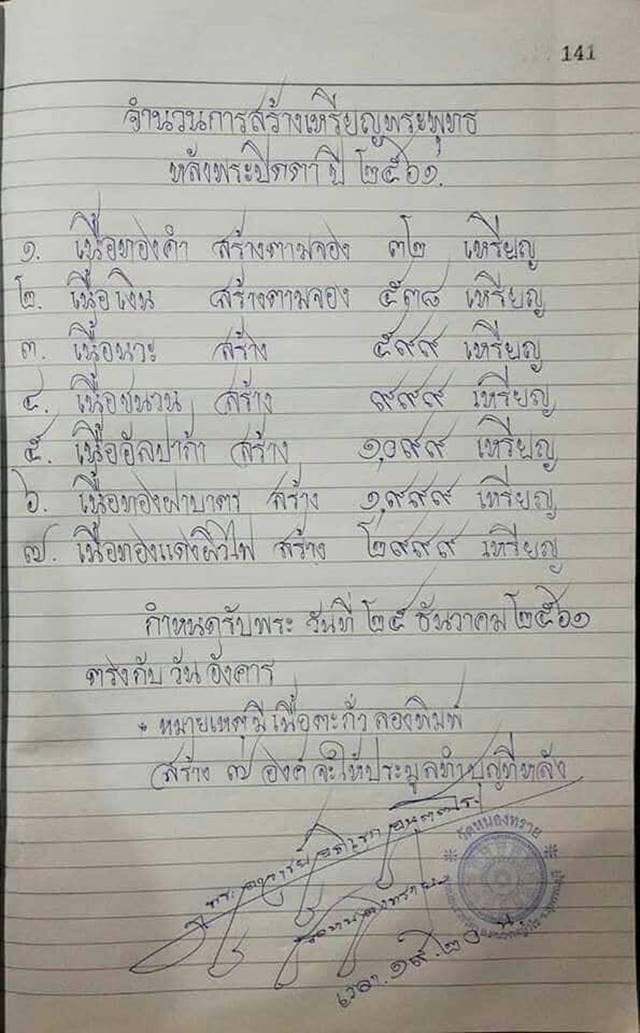 141
จำนวนการสร้างเหรียญพระพุทธ
หลังพระปิดตา ปี ๒๕๖๑.
๑. เนื้อทองคำ สร้างตามจอง ๓๒ เหรียญ
๒. เนื้อเงิน สร้างตามจอง ๕๓๘ เหรียญ
๓. เนื้อนวะ สร้าง ๕๙๙ เหรียญ
๔. เนื้อชนวน สร้าง ๙๙๙ เหรียญ
๕. เนื้ออัลปาก้า สร้าง ๑,๐๙๙ เหรียญ
๖. เนื้อทองฝาบาตร สร้าง ๑,๙๙๙ เหรียญ
๗. เนื้อทองแดงผิวไฟ สร้าง ๒๙๙๙ เหรียญ
กำหนดรับพระ วันที่ ๒๕ ธันวาคม ๒๕๖๑
ตรงกับ วัน อังคาร
* หมายเหตุ มี เนื้อตะกั่ว ลองพิมพ์
สร้าง ๗ องค์ จะให้ประมูลทำบุญทีหลัง
วัดหนองทราย
เวลา. ๑๙.๒๐ น.